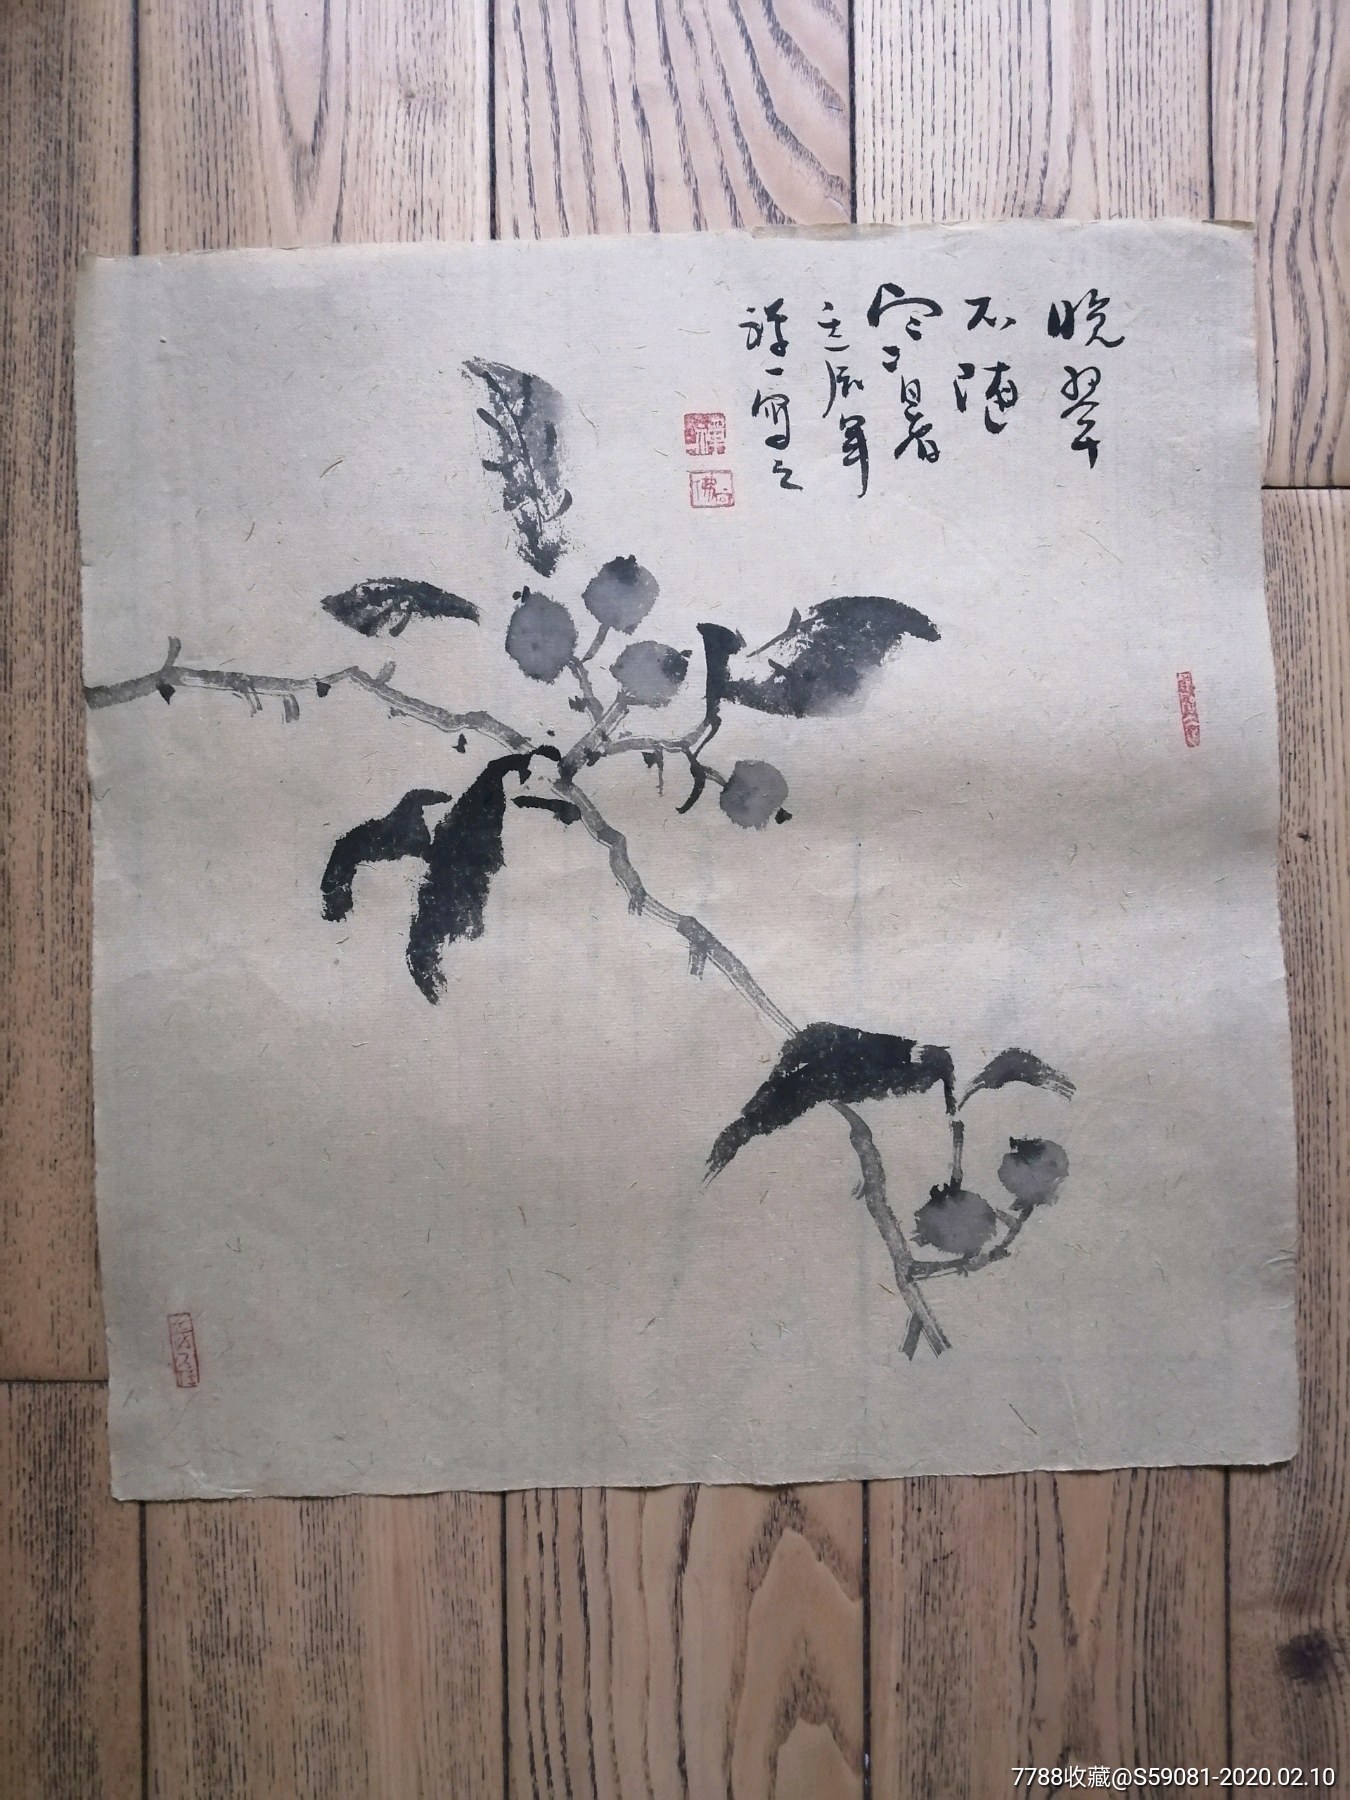 晚翠
不随
寒暑
壬辰年
禅一写之
7788收藏@S59081-2020.02.10